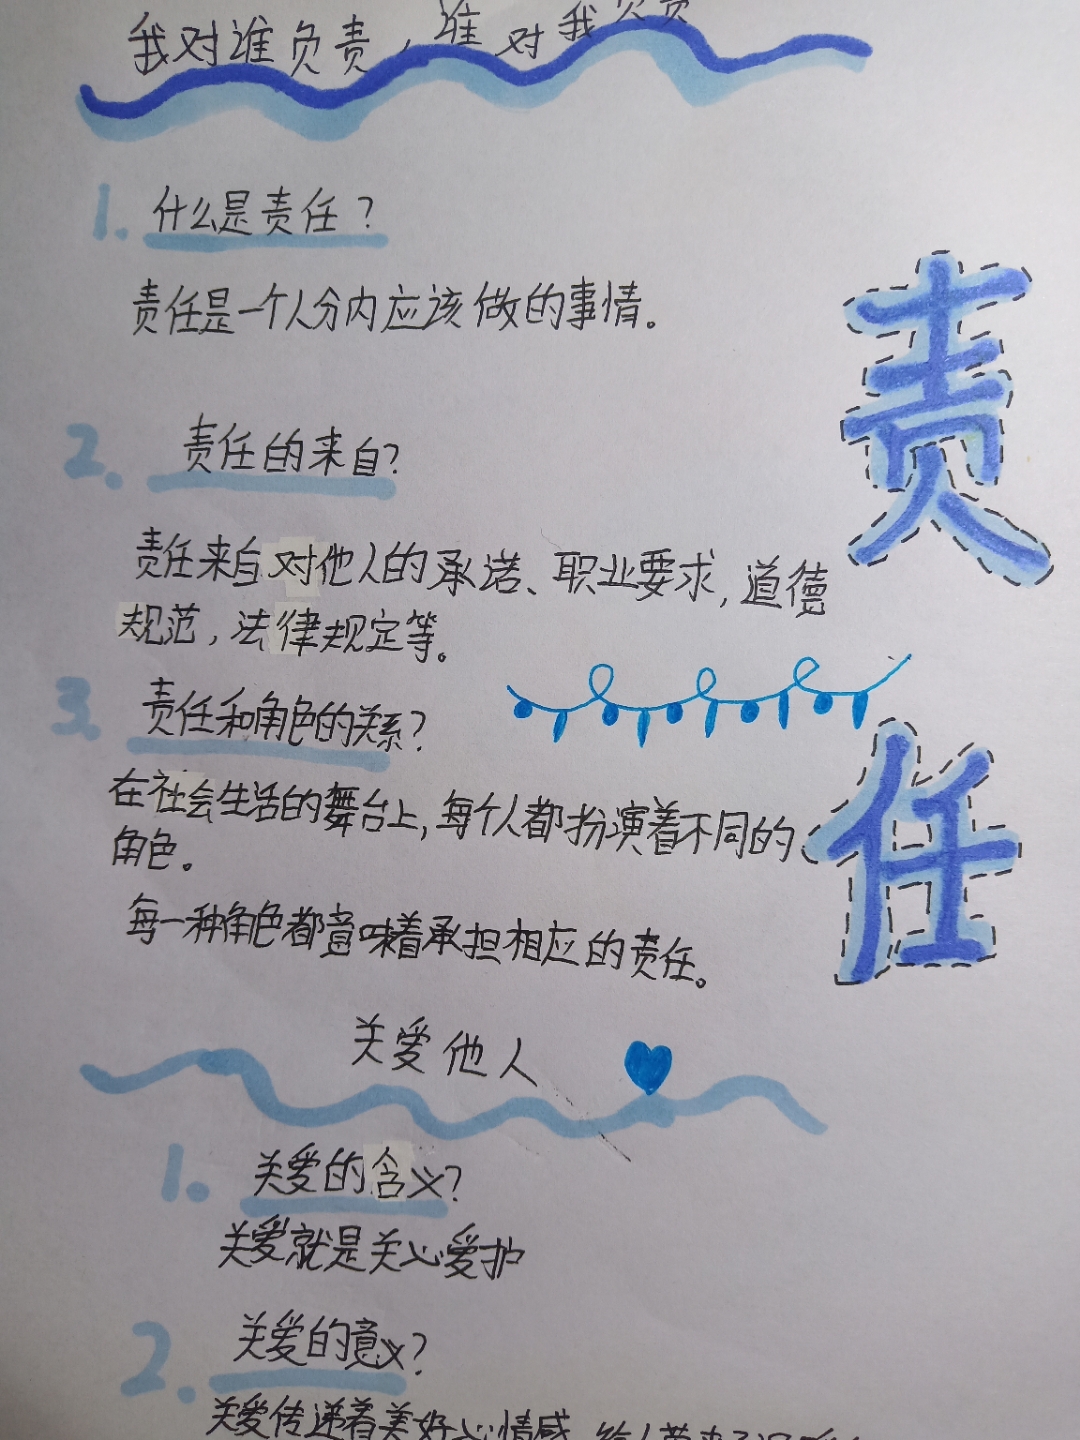 我对谁负责，谁对我负责
1. 什么是责任？
责任是一个人分内应该做的事情。
责
2. 责任的来自？
责任来自对他人的承诺、职业要求，道德
规范，法律规定等。
3. 责任和角色的关系？
任
在社会生活的舞台上，每个人都扮演着不同的
角色。
每一种角色都意味着承担相应的责任。
关爱他人
1. 关爱的含义？
关爱就是关心爱护
2. 关爱的意义？
关爱传递着美好心情感